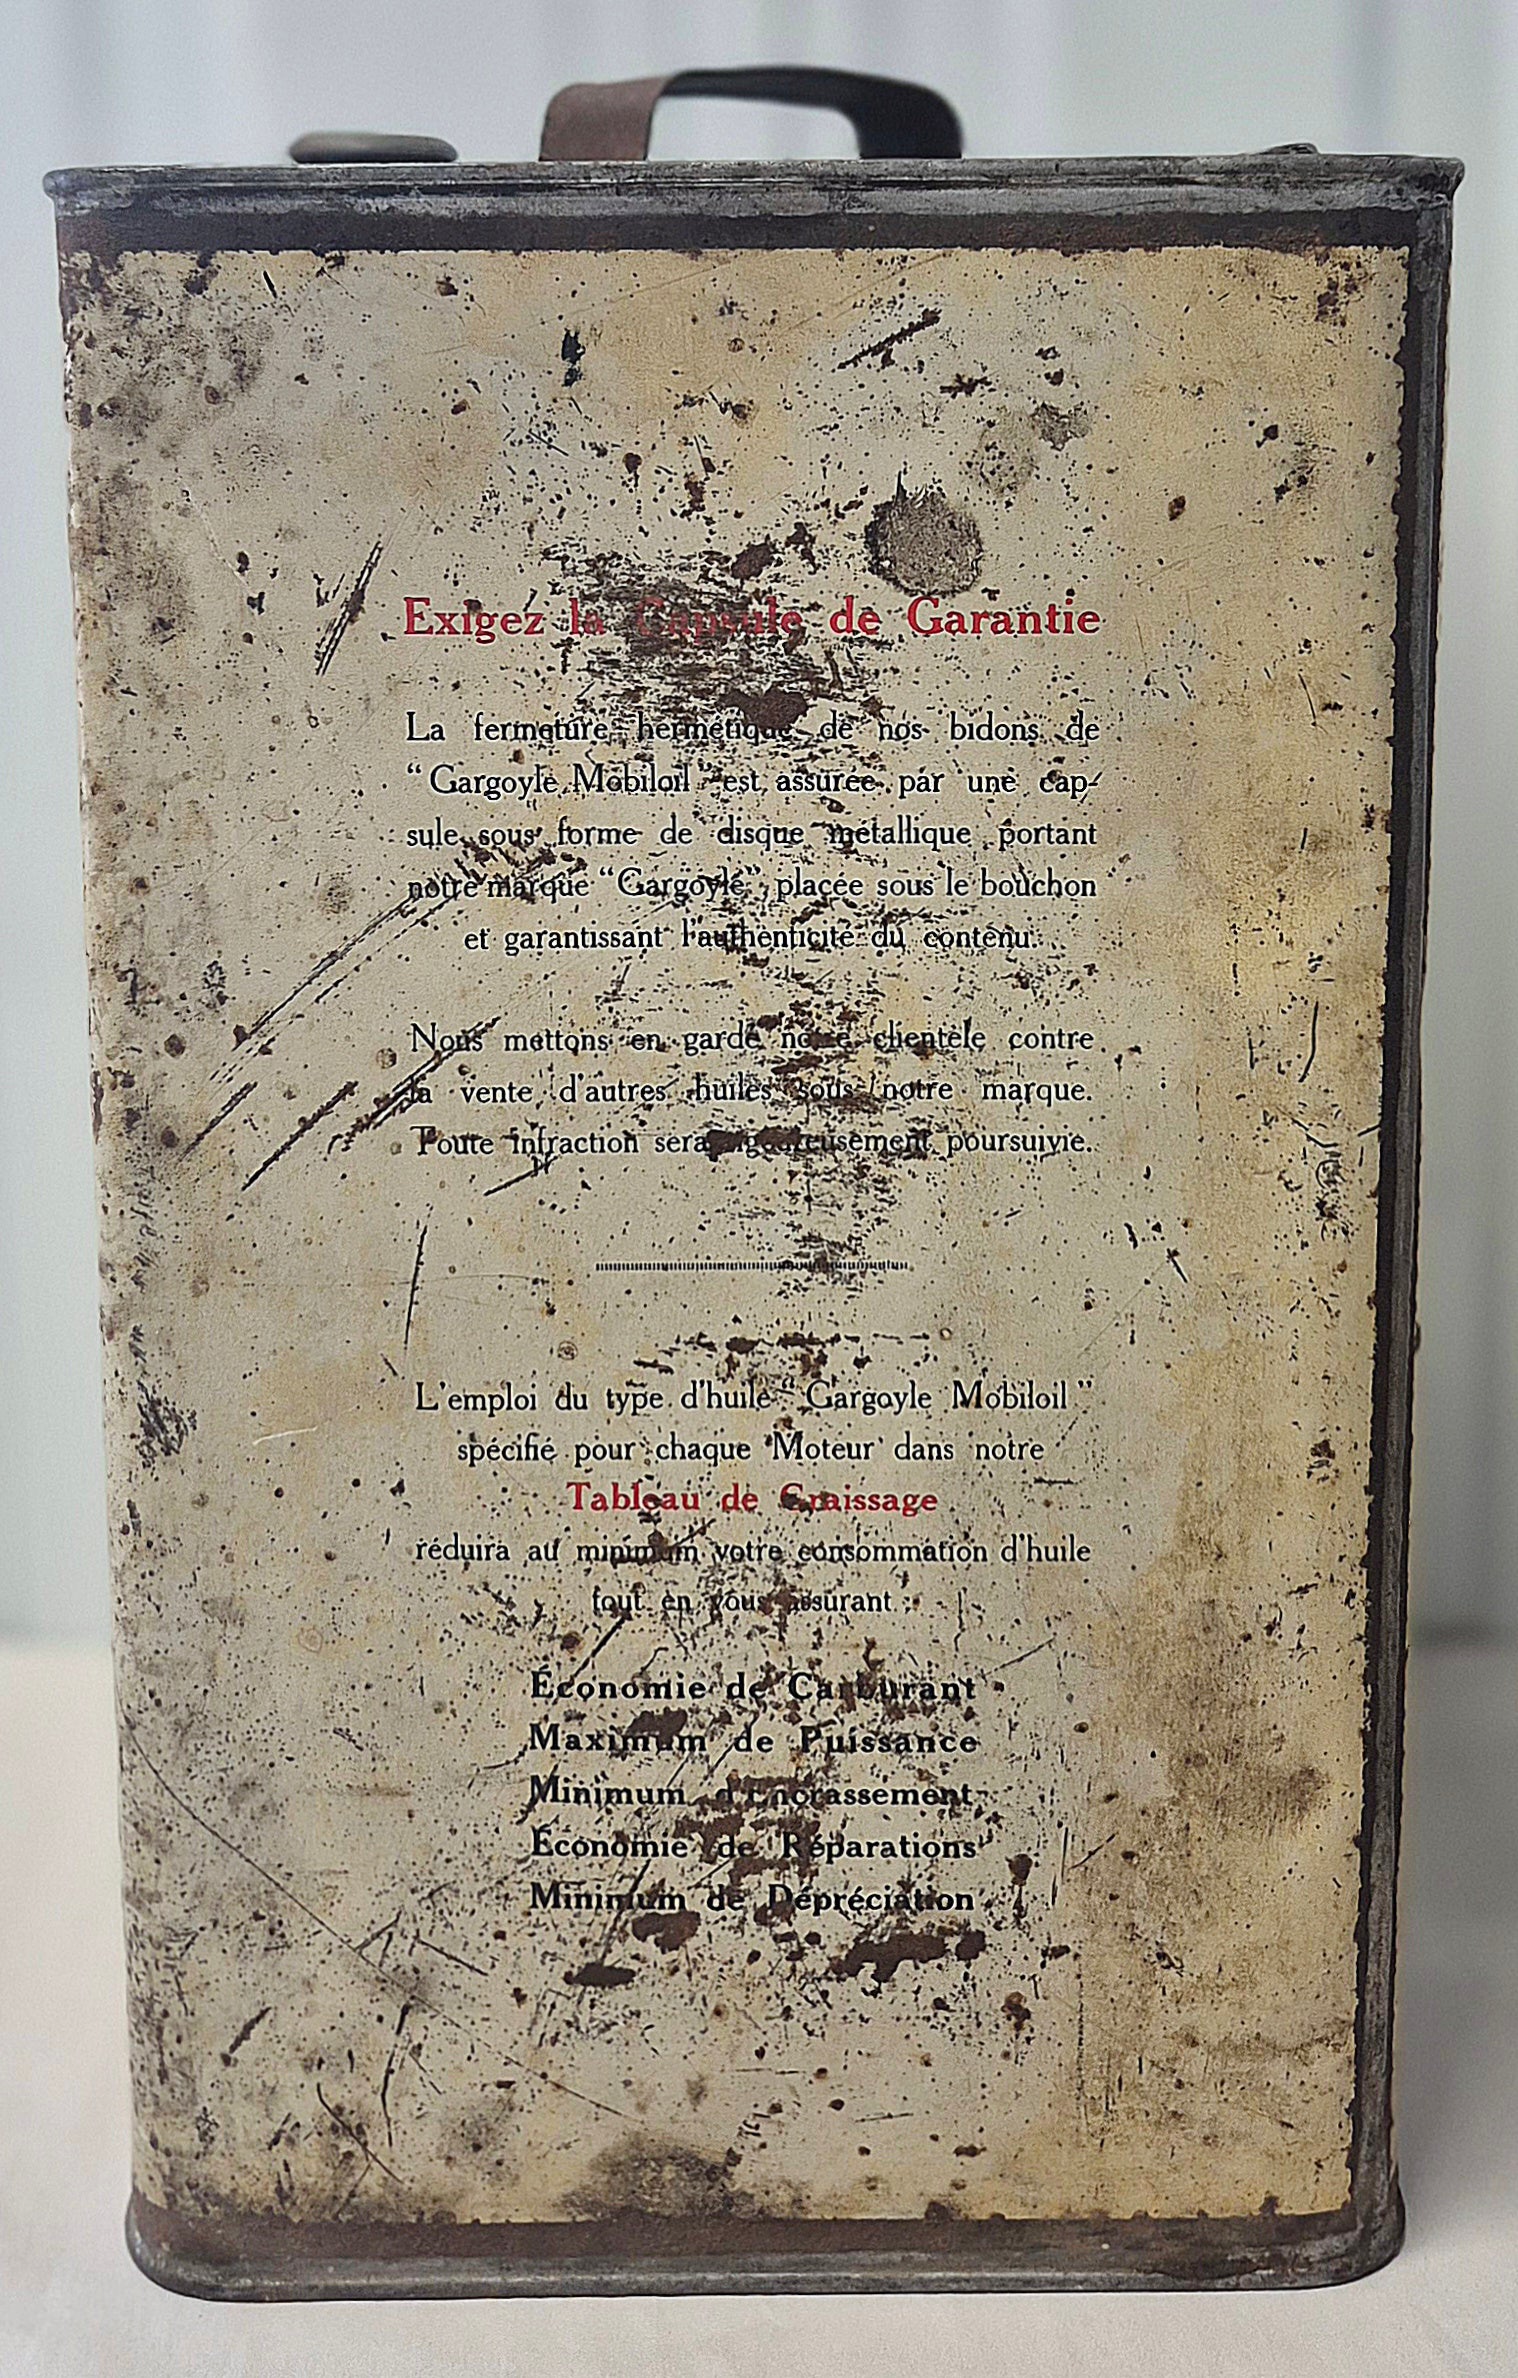 Exigez la Capsule de Garantie
La fermeture hermétique de nos bidons de
“Gargoyle Mobiloil” est assurée par une cap-
sule sous forme de disque métallique portant
notre marque “Gargoyle”, placée sous le bouchon
et garantissant l'authenticité du contenu.
Nous mettons en garde notre clientèle contre
la vente d'autres huiles sous notre marque.
Toute infraction sera rigoureusement poursuivie.
L'emploi du type d'huile “Gargoyle Mobiloil”
spécifié pour chaque Moteur dans notre
Tableau de Graissage
réduira au minimum votre consommation d'huile
tout en vous assurant :
Économie de Carburant
Maximum de Puissance
Minimum d'Encrassement
Économie de Réparations
Minimum de Dépréciation